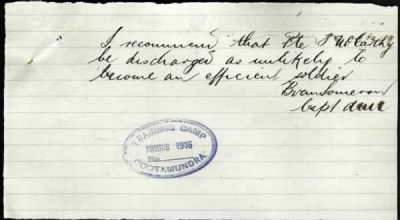 I recommend that Pte J McCarthy
be discharged as unlikely to
become an efficient soldier
Capt
TRAINING CAMP
1916
No
COOTAMUNDRA